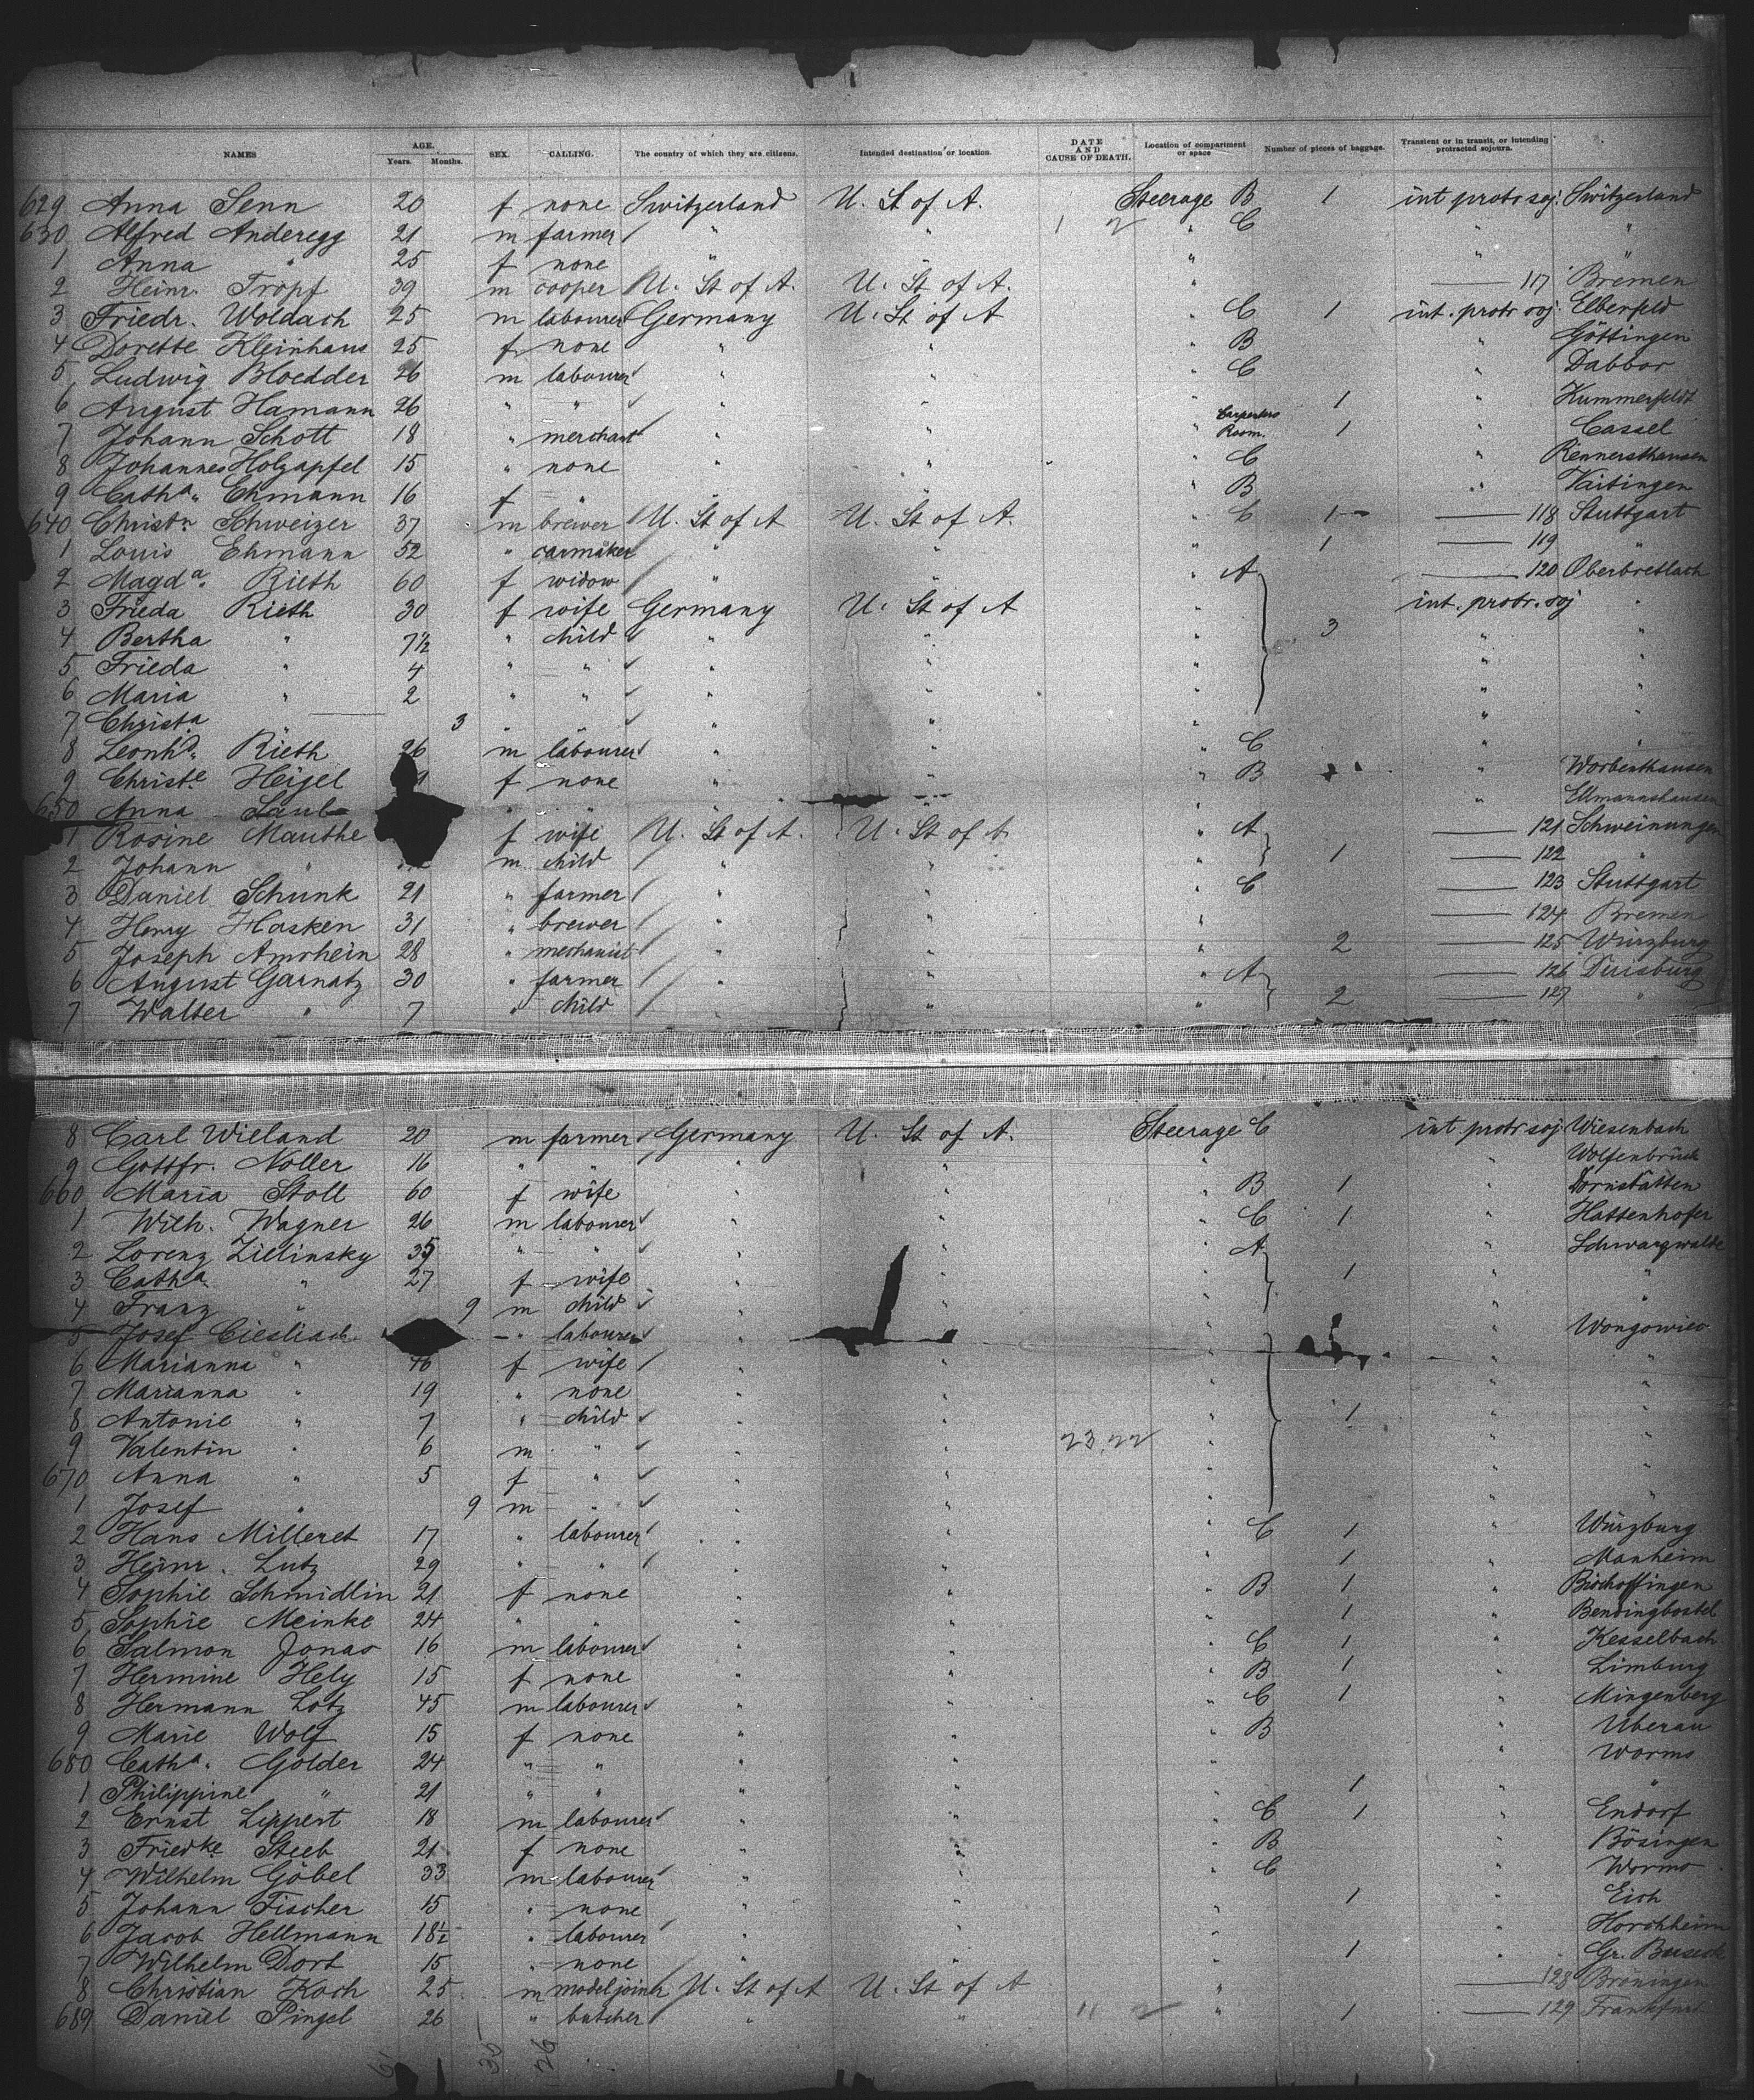 NAMES AGE. Years. Months. SEX. CALLING. The country of which they are citizens. Intended destination or location. DATE AND CAUSE OF DEATH. Location of compartment or space Number of pieces of baggage. Transient or in transit, or intending protracted sojourn.
629 Anna Senn 20 f none Switzerland U. St of A. Steerage B 1 int protr soj. Switzerland
630 Alfred Anderegg 21 m farmer " " 1 2 " C " "
1 Anna " 25 f none " " " " "
2 Heinr. Tropf 39 m cooper U. St of A. U. St of A. " 117 Bremen
3 Friedr. Woldach 25 m labourer Germany U. St of A " C 1 int. protr soj. Elberfeld
4 Dorette Kleinhans 25 f none " " " B " Göttingen
5 Ludwig Bloedder 26 m labourer " " " C " Dabbor
6 August Hamann 26 " " " " 1 " Kummerfeldt
7 Johann Schott 18 " merchant " " " Carpenters Room. 1 " Cassel
8 Johannes Holzapfel 15 " none " " " C " Rennersthausen
9 Catha. Ehmann 16 f " " " " B " Vaitingen
640 Christn Schweizer 37 m brewer U. St of A U. St of A. " C 1 118 Stuttgart
1 Louis Ehmann 52 " carmaker " " " 1 119 "
2 Magda. Rieth 60 f widow " " " A 120 Oberbretlach
3 Frieda Rieth 30 f wife Germany U. St of A " int. protr. soj "
4 Bertha " 7½ " child " " " 3 " "
5 Frieda " 4 " " " " " " "
6 Maria " 2 " " " " " " "
7 Christa " 3 " " " " " " "
8 Leonhd. Rieth 26 m labourer " " " C " "
9 Christe Heigel f none " " " B " Worbenthausen
650 Anna Laub " " " Ellmannshausen
1 Rosine Mauthe f wife U. St of A. U. St of A " A 121 Schweinungen
2 Johann " m child " " " 1 122 "
3 Daniel Schunk 21 " farmer " " " C 123 Stuttgart
4 Henry Hasken 31 " brewer " " " 124 Bremen
5 Joseph Amrhein 28 " mechanist " " " 2 125 Würzburg
6 August Garnatz 30 " farmer " " " A 126 Duisburg
7 Walter " 7 " child " " 2 127 "
8 Carl Wieland 20 m farmer Germany U. St of A. Steerage C int protr soj Wiesenbach
9 Gottfr. Noller 16 " " " " " " Wolfenbrück
660 Maria Stoll 60 f wife " " " B 1 " Dornstatten
1 Wilh. Wagner 26 m labourer " " " C 1 " Hattenhofer
2 Lorenz Zielinsky 35 " " " " " A " Schwarzwalde
3 Catha " 27 f wife " " " 1 " "
4 Franz " 9 m child " " " " "
5 Josef Ciesliach " labourer " Wongowiec
6 Marianna " 46 f wife " " " " "
7 Marianna " 19 " none " " " " "
8 Antonie " 7 " child " " " 1 " "
9 Valentin " 6 m " " " 23,22 " " "
670 Anna " 5 f " " " " " "
1 Josef " 9 m " " " " " "
2 Hans Milleret 17 " labourer " " " C 1 " Würzburg
3 Heinr. Lutz 29 " " " " " 1 " Manheim
4 Sophie Schmidlin 21 f none " " " B 1 " Bischoffingen
5 Sophie Meinke 24 " " " " " 1 " Bendingbostel
6 Salmon Jonas 16 m labourer " " " C 1 " Kesselbach
7 Hermine Hely 15 f none " " " B 1 " Limburg
8 Hermann Lotz 45 m labourer " " " C 1 " Mingenberg
9 Marie Wolf 15 f none " " " B " Uberau
680 Catha. Golder 24 " " " " " " Worms
1 Philippine " 21 " " " " " 1 " "
2 Ernst Lippert 18 m labourer " " " C 1 " Endorf
3 Friedke Steeb 21 f none " " " B " Bösingen
4 Wilhelm Göbel 33 m labourer " " " C " Worms
5 Johann Fischer 15 " none " " " 1 " Eich
6 Jacob Hellmann 18½ " labourer " " " " Horchheim
7 Wilhelm Dort 15 " none " " " 1 " Gr. Buseck
8 Christian Koch 25 m modeljoiner U. St of A U. St of A " 128 Bröningen
689 Daniel Pingel 26 " butcher " " 11 " 1 129 Frankfurt
61 35 26